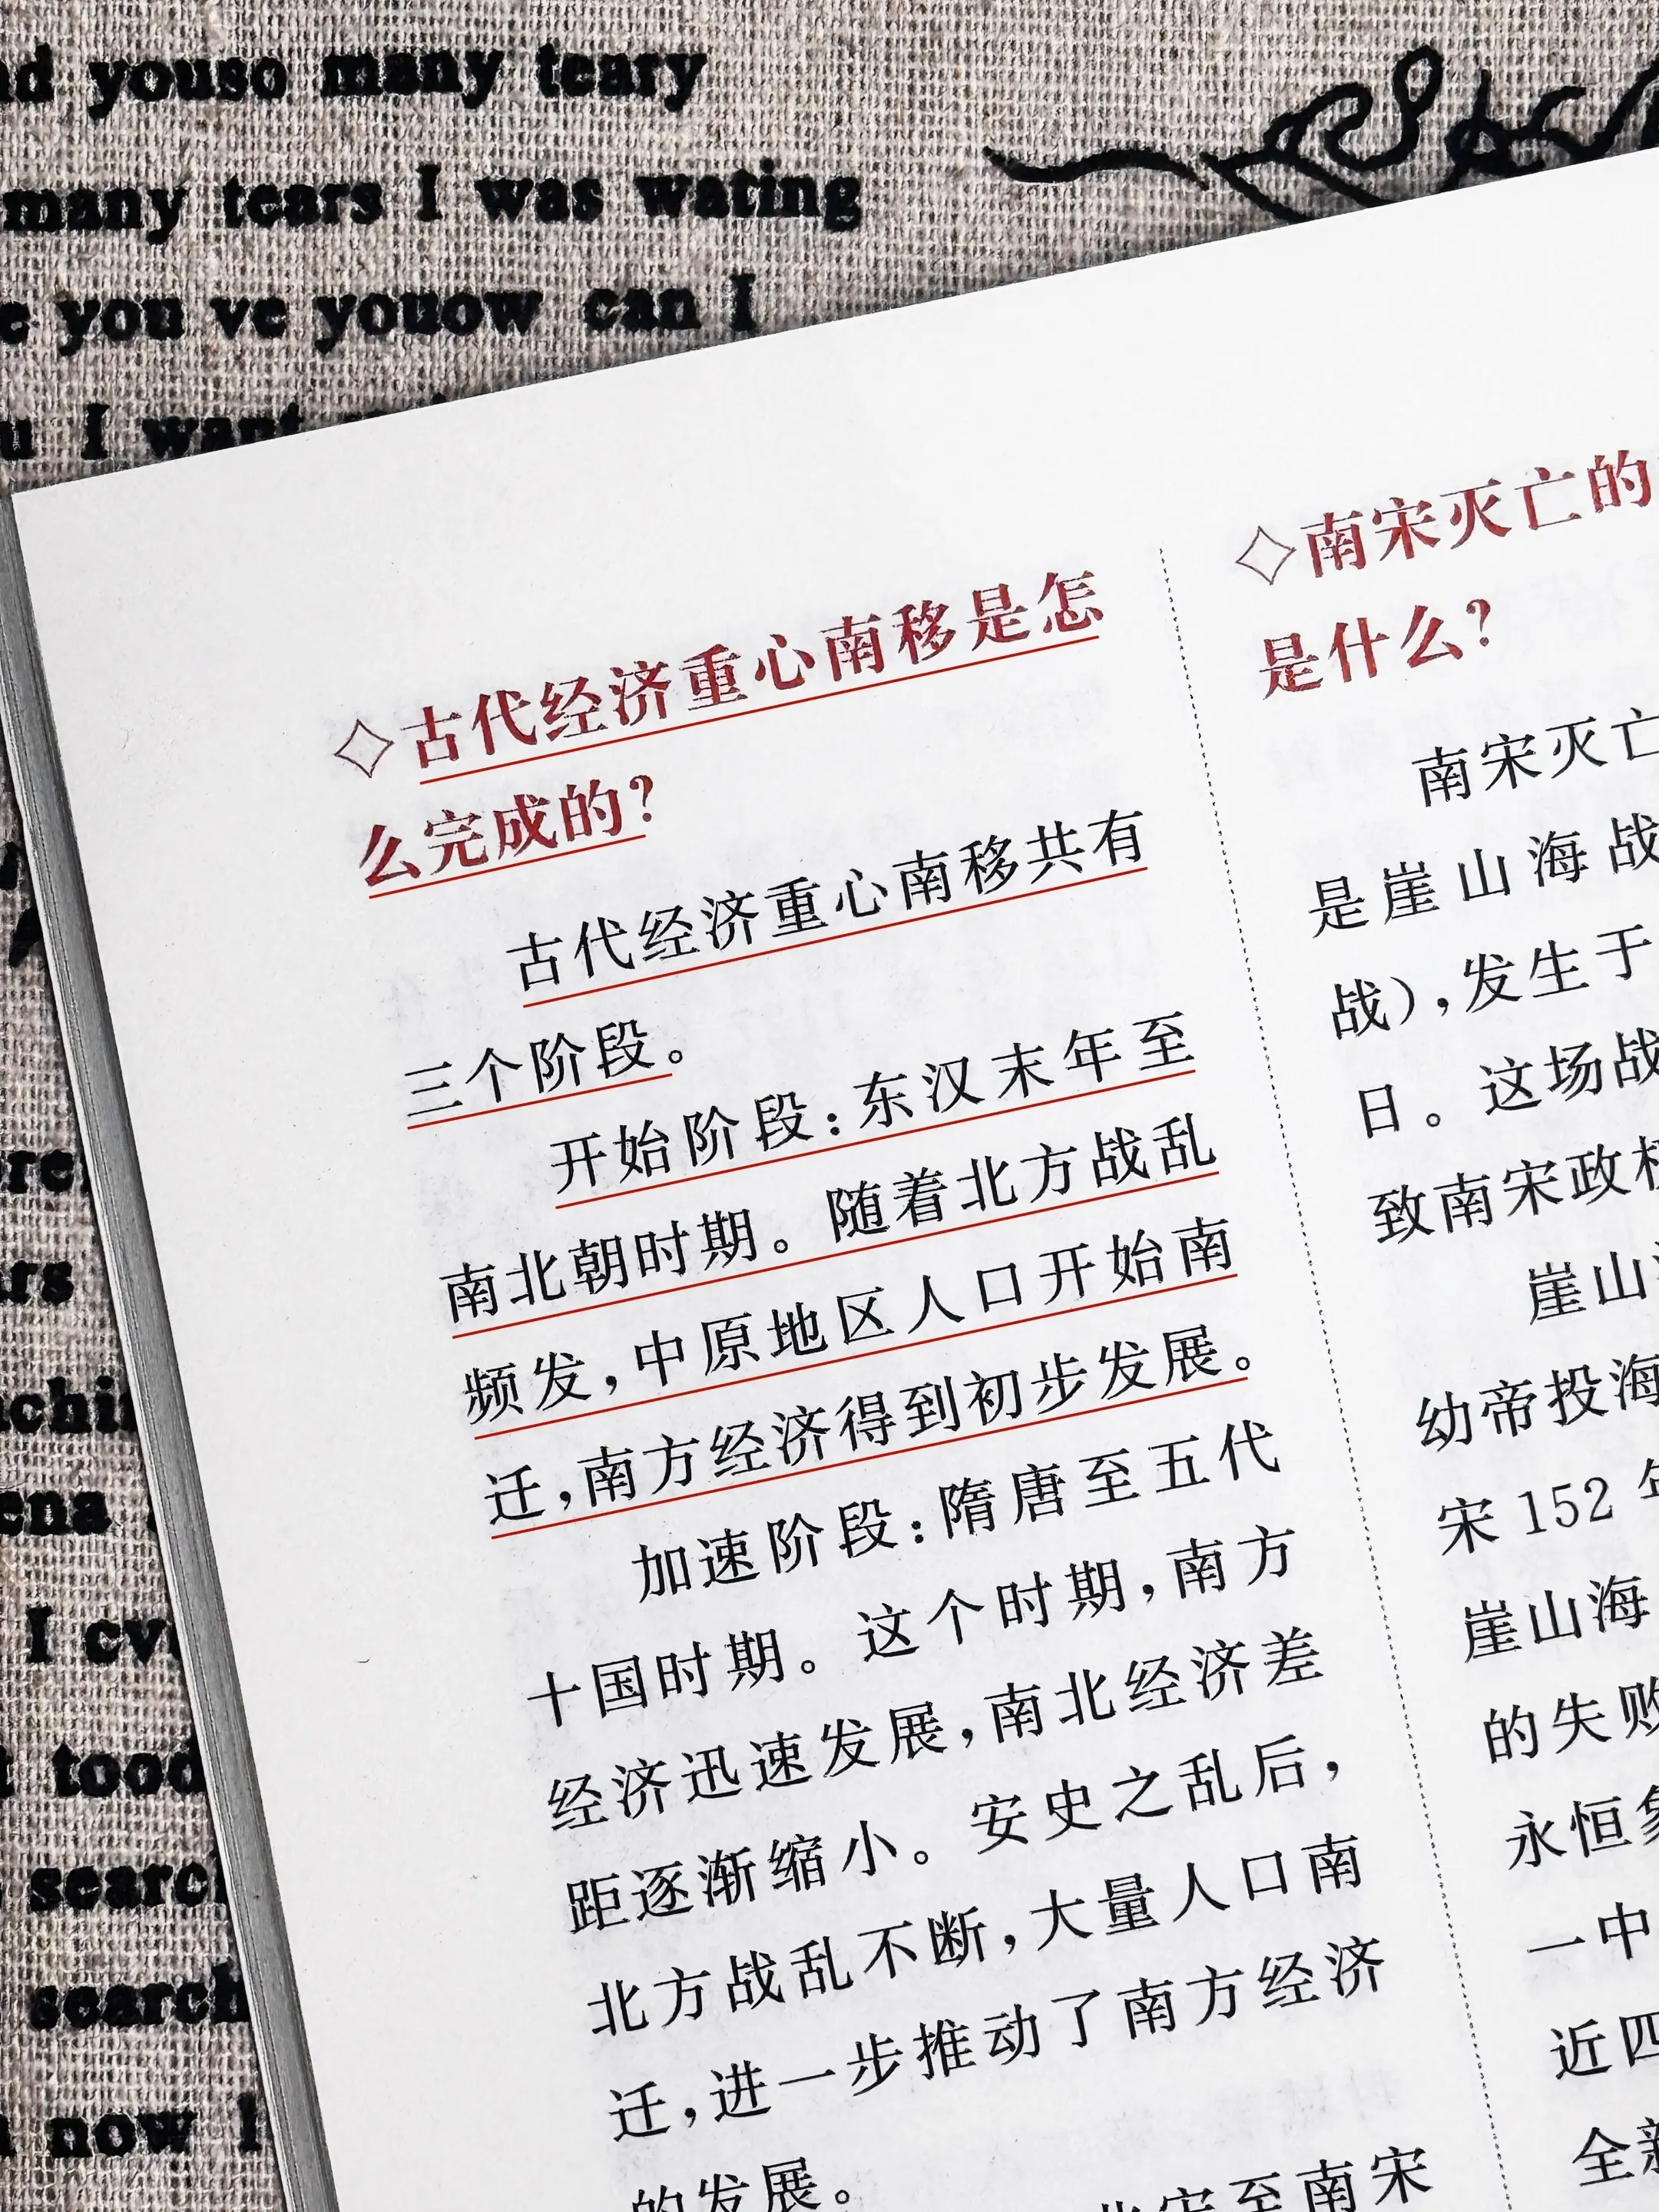 youso many teary
many tears I was wating
you ve youow can I
I want
◇古代经济重心南移是怎
么完成的?
古代经济重心南移共有
三个阶段。
开始阶段:东汉末年至
南北朝时期。随着北方战乱
频发,中原地区人口开始南
迁,南方经济得到初步发展。
加速阶段:隋唐至五代
十国时期。这个时期,南方
经济迅速发展,南北经济差
距逐渐缩小。安史之乱后,
北方战乱不断,大量人口南
迁,进一步推动了南方经济
的发展。
北宋至南宋
◇南宋灭亡的
是什么?
南宋灭亡
是崖山海战
战),发生于
日。这场战
致南宋政权
崖山海
幼帝投海
宋152年
崖山海
的失败
永恒象
一中
近四
全新
I
tood
search
search
now